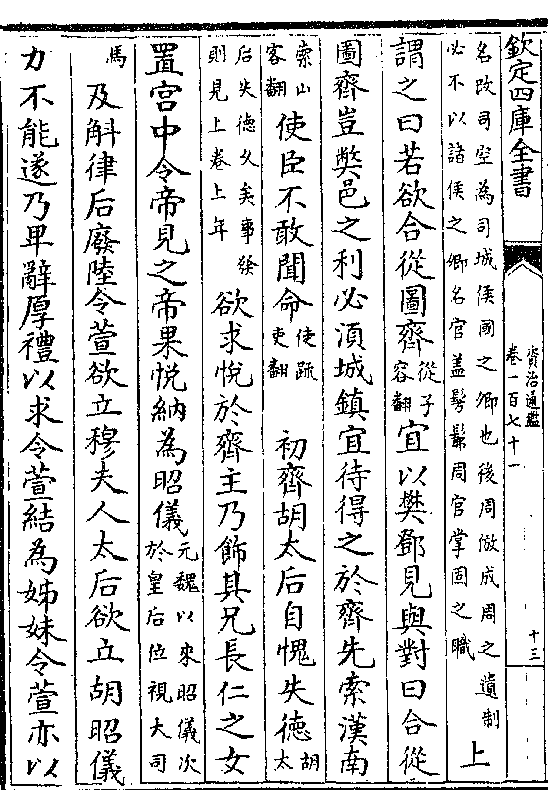 欽定四庫全書
資治通鑑
卷一百七十一
十三
名改司空為司城侯國之卿也後周倣成周之遺制
必不以諸侯之卿名官盖髣髴周官掌固之職
上
謂之曰若欲合從圖齊
從子
容翻
宜以樊鄧見與對曰合從
圖齊豈弊邑之利必須城鎮宜待得之於齊先索漢南
索山
客翻
使臣不敢聞命
使疏
吏翻
初齊胡太后自愧失德
胡
太
后失德久矣事發
則見上卷上年
欲求悅於齊主乃飾其兄長仁之女
置宫中令帝見之帝果悅納為昭儀
元魏以來昭儀次
於皇后位視大司
馬
及斛律后廢陸令萱欲立穆夫人太后欲立胡昭儀
力不能遂乃卑辭厚禮以求令萱結為姊妹令萱亦以